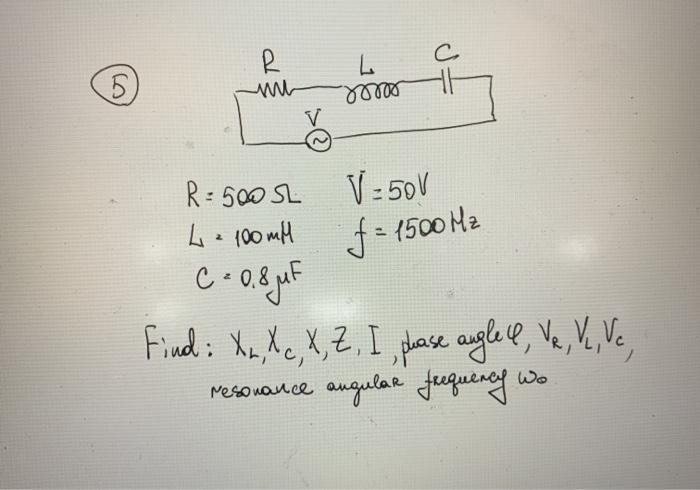 5
R L C
V
R = 500 Ω V = 50V
L = 100 mH f = 1500 Hz
C = 0.8 μF
Find: XL, XC, X, Z, I, phase angle φ, VR, VL, VC,
resonance angular frequency ω₀